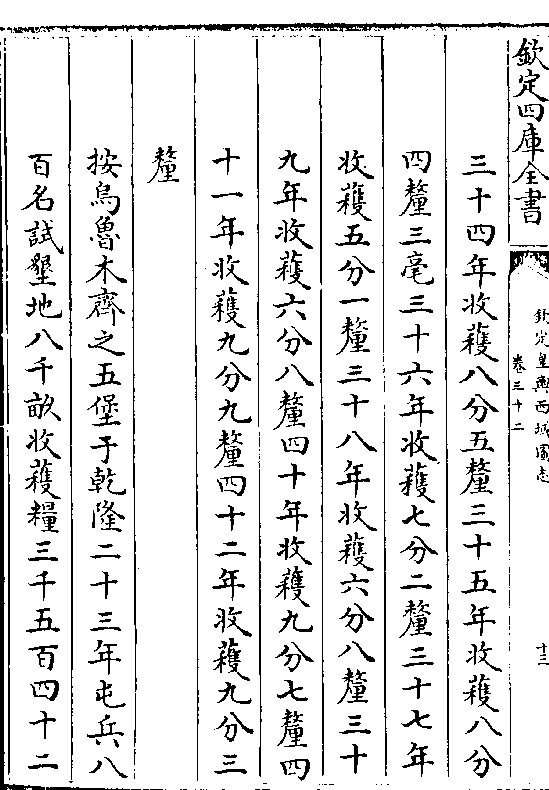 欽定四庫全書
欽定皇輿西域圖志
卷三十二
十三
三十四年收穫八分五釐三十五年收穫八分
四釐三毫三十六年收穫七分二釐三十七年
收穫五分一釐三十八年收穫六分八釐三十
九年收穫六分八釐四十年收穫九分七釐四
十一年收穫九分九釐四十二年收穫九分三
釐
按烏魯木齊之五堡于乾隆二十三年屯兵八
百名試墾地八千畝收穫糧三千五百四十二